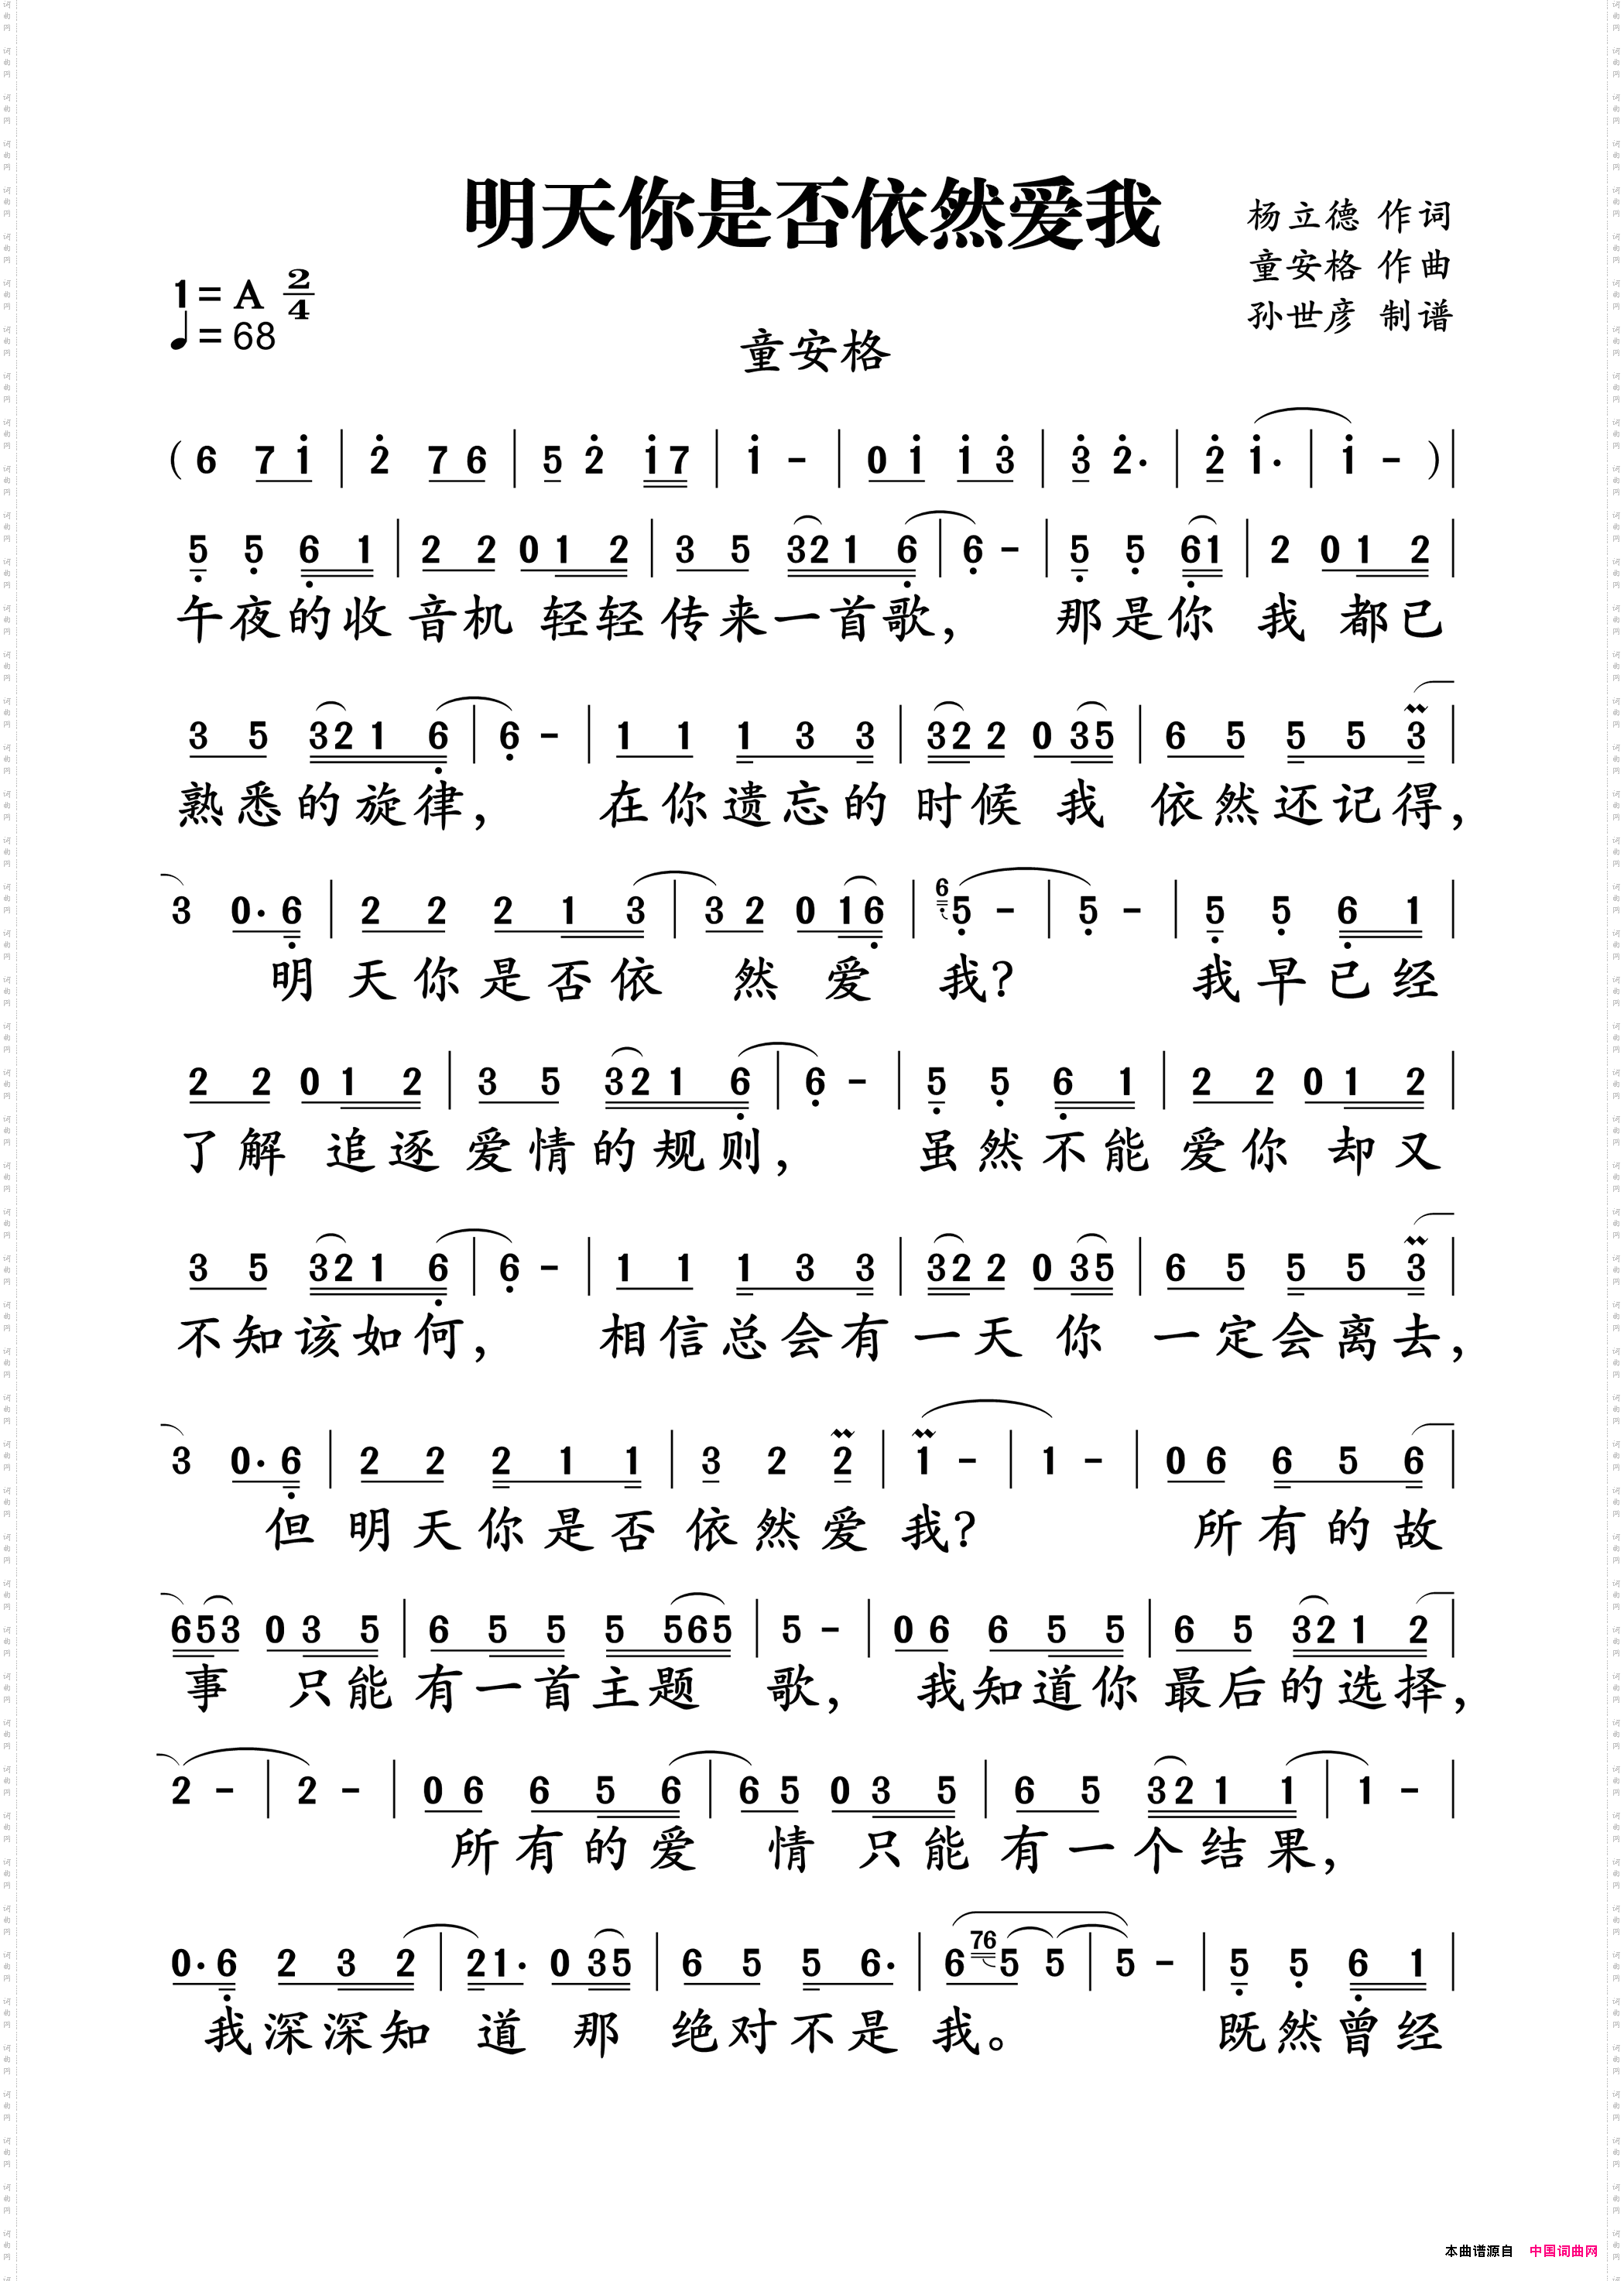 明天你是否依然爱我
杨立德 作词
童安格 作曲
孙世彦 制谱
1=A 2/4
♩=68
童安格
( 6 7 1̇ | 2̇ 7 6 | 5 2̇ 1̇ 7 | 1̇ - | 0 1̇ 1̇ 3̇ | 3̇ 2̇· | 2̇ 1̇· | 1̇ - ) |
5̣ 5̣ 6̣ 1 | 2 2 0 1 2 | 3 5 3 2 1 6̣ | 6̣ - | 5̣ 5̣ 6̣ 1 | 2 0 1 2 |
午夜的收 音机 轻轻 传来一首歌, 那是你 我 都已
3 5 3 2 1 6̣ | 6̣ - | 1 1 1 3 3 | 3 2 2 0 3 5 | 6 5 5 5 3 |
熟悉的旋律, 在你遗忘的 时候 我 依然还记得,
3 0· 6̣ | 2 2 2 1 3 | 3 2 0 1 6̣ | 6̣ 5̣ - | 5̣ - | 5̣ 5̣ 6̣ 1 |
明 天你是否依 然 爱 我? 我早已经
2 2 0 1 2 | 3 5 3 2 1 6̣ | 6̣ - | 5̣ 5̣ 6̣ 1 | 2 2 0 1 2 |
了解 追逐 爱情的规则, 虽然不能 爱你 却又
3 5 3 2 1 6̣ | 6̣ - | 1 1 1 3 3 | 3 2 2 0 3 5 | 6 5 5 5 3 |
不知该如何, 相信总会有 一天 你 一定会离去,
3 0· 6̣ | 2 2 2 1 1 | 3 2 2 | 1 - | 1 - | 0 6 6 5 6 |
但 明天你是否 依然爱 我? 所有的故
6 5 3 0 3 5 | 6 5 5 5 5 6 5 | 5 - | 0 6 6 5 5 | 6 5 3 2 1 2 |
事 只能 有一首主题 歌, 我知道你 最后的选择,
2 - | 2 - | 0 6 6 5 6 | 6 5 0 3 5 | 6 5 3 2 1 1 | 1 - |
所有的爱 情 只能 有一个结果,
0· 6̣ 2 3 2 | 2 1· 0 3 5 | 6 5 5 6· | 6 7 6 5 5 | 5 - | 5̣ 5̣ 6̣ 1 |
我深深知 道 那 绝对不是 我。 既然曾经
本曲谱源自 中国词曲网